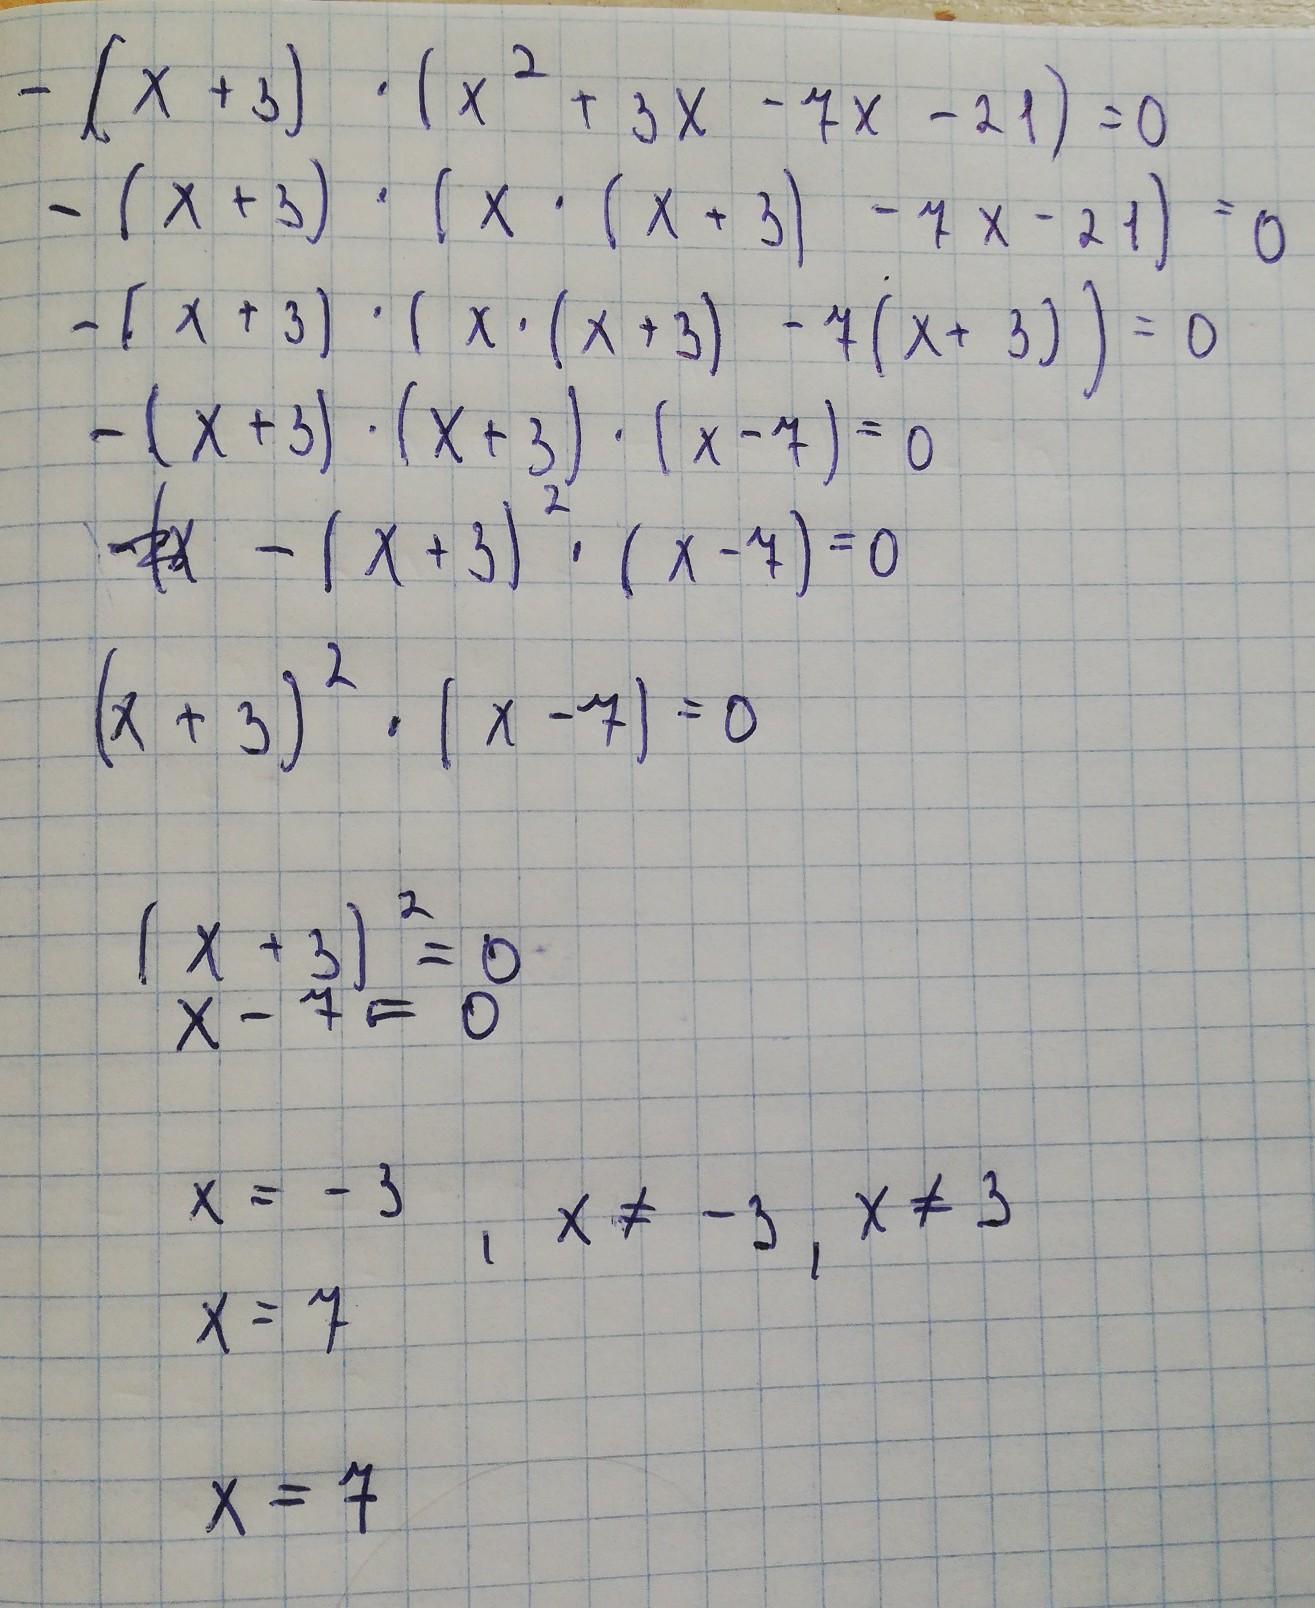 - (x + 3) · (x² + 3x - 7x - 21) = 0
- (x + 3) · (x · (x + 3) - 7x - 21) = 0
- (x + 3) · (x · (x + 3) - 7(x + 3)) = 0
- (x + 3) · (x + 3) · (x - 7) = 0
- (x + 3)² · (x - 7) = 0
(x + 3)² · (x - 7) = 0
(x + 3)² = 0
x - 7 = 0
x = -3 , x ≠ -3, x ≠ 3
x = 7
x = 7